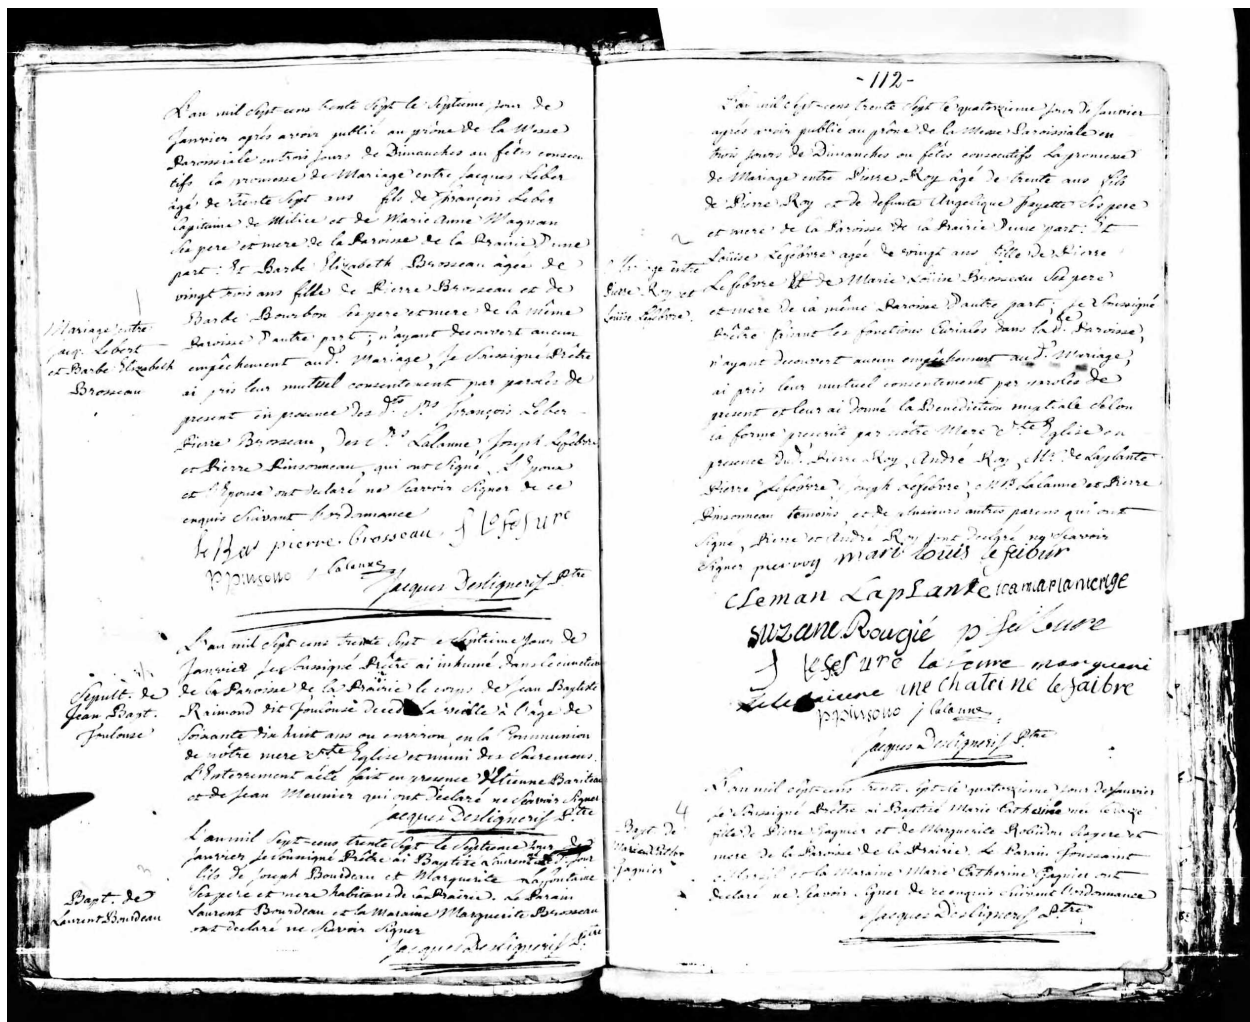 L'an mil sept cens trente sept le septieme jour de
Janvier après avoir publié au prône de la Messe
Paroissiale en trois jours de Dimanches ou fêtes consecu
tifs la promesse de Mariage entre Jacques Leber
âgé de trente sept ans fils de François Leber
Capitaine de Milice et de Marie Anne Magnan
ses pere et mere de la Paroisse de la Prairie d'une
part: Et Barbe Elizabeth Brosseau âgée de
vingt trois ans fille de Pierre Brosseau et de
Barbe Bourbon ses pere et mere de la même
Paroisse d'autre part; n'ayant decouvert aucun
empêchement aud. Mariage, Je soussigné Prêtre
ai pris leur mutuel consentement par paroles de
present en presence des dts Srs François Leber
Pierre Brosseau, des Lalanne, Joseph Lefebvre
et Pierre Pinsonneau, qui ont signé, L'Epoux
et l'Epouse ont declaré ne sçavoir signer de ce
enquis suivant l'ordonnance
Mariage entre
Jacq. Lebert
et Barbe Elizabeth
Brosseau
pierre brosseau J lefebure
ppinsono J lalanne
Jacques Desligneris Ptre
L'an mil sept cens trente sept le septieme jour de
Janvier Je soussigné Prêtre ai inhumé dans le cimetiere
de la Paroisse de la Prairie le corps de Jean Baptiste
Raimond dit Toulouse decedé la veille à l'âge de
soixante dix huit ans ou environ, en la Communion
de nôtre mere Ste Eglise et muni des Sacremens.
L'Enterrement a été fait en presence d'Etienne Bariteau
et de Jean Meunier qui ont déclaré ne sçavoir signer
Sepult. de
Jean Bapt.
Toulouse
Jacques Desligneris Ptre
L'an mil sept cens trente sept le septieme jour de
Janvier, Je soussigné Prêtre ai Baptisé Laurent
fils de Joseph Bourdeau et Marguerite Lafontaine
ses pere et mere habitans de la Prairie. Le Parain
Laurent Bourdeau et la Maraine Marguerite Brosseau
ont declaré ne sçavoir signer
3
Bapt. de
Laurent Bourdeau
Jacques Desligneris Ptre
-112-
L'an mil sept cens trente sept le quatorzieme jour de Janvier
après avoir publié au prône de la Messe Paroissiale en
trois jours de Dimanches ou fêtes consecutifs la promesse
de Mariage entre Pierre Roy âgé de trente ans fils
de Pierre Roy et de defunte Angelique fayette ses pere
et mere de la Paroisse de la Prairie d'une part: Et
Louise Lefebvre agée de vingt ans fille de Pierre
Lefebvre Et de Marie Louise Brosseau ses pere
et mere de la même Paroisse d'autre part; Je soussigné
Prêtre faisant les fonctions Curiales dans la de Paroisse,
n'ayant decouvert aucun empêchement aud. Mariage,
ai pris leur mutuel consentement par paroles de
present et leur ai donné la Benediction nuptiale selon
la forme prescrite par nôtre Mere Ste Eglise en
presence dud. Pierre Roy, André Roy, Mr. de Laplante
Pierre Lefebvre, Joseph Lefebvre, Lalanne et Pierre
Pinsonneau temoins, et de plusieurs autres parens qui ont
signé, Pierre et André Roy ont declaré ny sçavoir
signer
2
Mariage entre
Pierre Roy et
Louise Lefebvre.
pier roy mari louis lefebur
cleman Laplante
suzane Rougié p faibure
J lefebure la veuve
ine chateine lefaibre
ppinsono J lalanne
Jacques Desligneris Ptre
L'an mil sept cens trente sept le quatorzieme jour de Janvier
je soussigné Prêtre ai Baptisé Marie Catherine née le
fille de Pierre Gagnier et de Marguerite Robidou ses pere et
mere de la Paroisse de la Prairie. Le Parain Toussaint
et la Maraine Marie Catherine Gagnier ont
declaré ne sçavoir signer de ce enquis suivant l'ordonnance
4
Bapt. de
Marie Cather
Gagnier
Jacques Desligneris Ptre